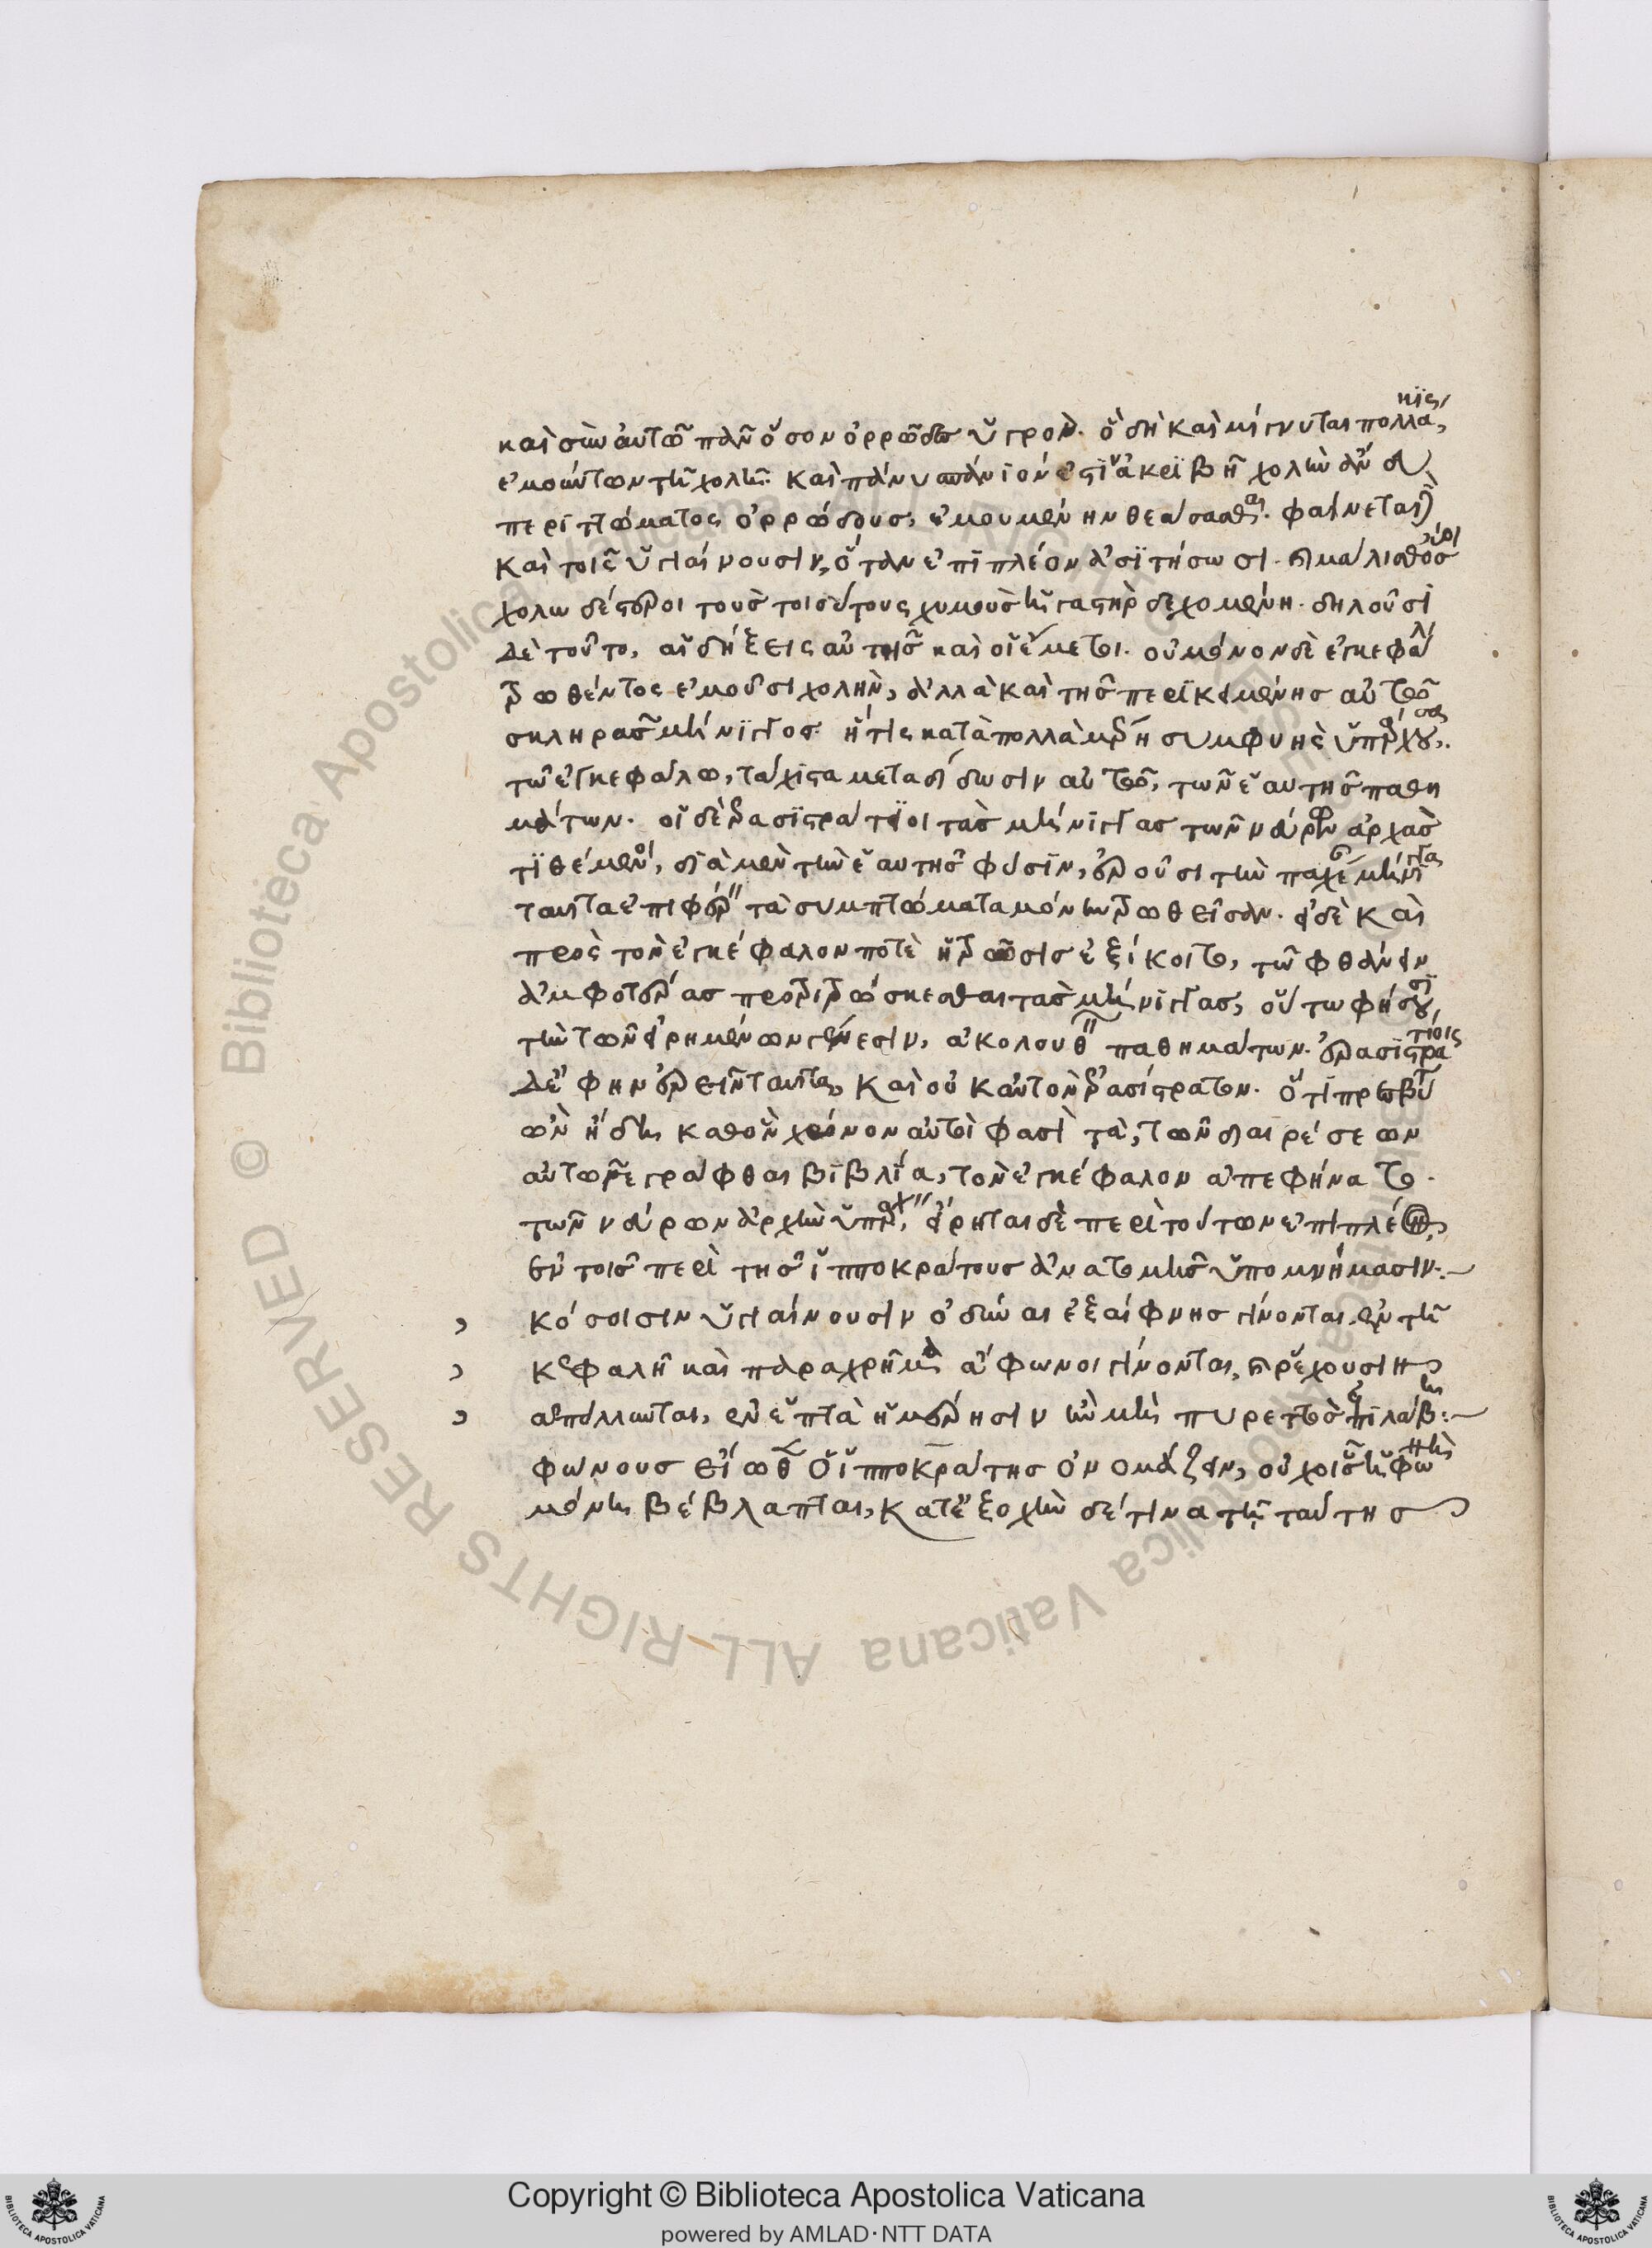 καὶ σὺν αὐτῷ πᾶν ὅσον ὀρρῶδες ὑγρόν. ὃ δὴ καὶ μίγνυται πολλάκις
ἐμούντων τῇ χολῇ. καὶ πάνυ σπάνιόν ἐστιν ἀκριβῆ χολὴν ἄνευ
περιττώματος ὀρρώδους, ἐμουμένην θεάσασθαι. φαίνεται
καὶ τοῖς ὑγιαίνουσιν, ὅταν ἐπιπλέον ἀσιτήσωσι. καὶ μάλισθ' ὅσοι
χολωδέστεροι τοὺς τοιούτους χυμοὺς ἡ γαστὴρ δεχομένη. δηλοῦσι
δὲ τοῦτο, αἱ δήξεις αὐτῆς καὶ οἱ ἔμετοι. οὐ μόνον δὲ ἐγκεφάλου
τρωθέντος ἐμοῦσι χολὴν, ἀλλὰ καὶ τῆς περικειμένης αὐτῷ
σκληρᾶς μήνιγγος. ἥτις κατὰ πολλὰ μέρη συμφυὴς ὑπάρχουσα
τῷ ἐγκεφάλῳ, τάχιστα μεταδίδωσιν αὐτῷ, τῶν ἑαυτῆς παθη
μάτων. οἱ δὲ ἐρασιστράτειοι τὰς μήνιγγας τῶν νεύρων ἀρχὰς
τιθέμενοι, διὰ μὲν τὴν ἑαυτῆς φύσιν, ἐροῦσι τὴν παχεῖαν μήνιγγα
ταῦτα ἐπιφέρειν τὰ συμπτώματα μόνην τρωθεῖσαν. εἰ δὲ καὶ
πρὸς τὸν ἐγκέφαλον ποτὲ ἡ τρῶσις ἐξίκοιτο, τῷ φθάνειν
ἀμφοτέρας προτιτρώσκεσθαι τὰς μήνιγγας, οὕτω φήσουσι
τὴν τῶν εἰρημένων γένεσιν, ἀκολουθεῖν παθημάτων. ἐρασιστρατείοις
δέ φην ἐρεῖν ταῦτα, καὶ οὐκ αὐτὸν ἐρασίστρατον. ὅτι πρεσβύτης
ὢν ἤδη καθ' ὃν χρόνον αὐτοί φασι τὰ, τῶν διαιρέσεων
αὐτῷ γεγράφθαι βιβλία, τὸν ἐγκέφαλον ἀπεφήνατο
τῶν νεύρων ἀρχὴν ὑπάρχειν, εἴρηται δὲ περὶ τούτων ἐπιπλέον
ἐν τοῖς περὶ τῆς ἱπποκράτους ἀνατομῆς ὑπομνήμασιν:-
κόσοισιν ὑγιαίνουσιν ὀδύναι ἐξαίφνης γίνονται ἐν τῇ
κεφαλῇ καὶ παραχρῆμα ἄφωνοι γίνονται, καὶ ῥέγχουσιν
ἀπόλλυνται, ἐν ἑπτὰ ἡμέρησιν ἢν μὴ πυρετὸς ἐπιλάβῃ:-
φώνους εἴωθεν ὁ ἱπποκράτης ὀνομάζειν, οὐχ οἷς ἡ φωνὴ
μόνη βέβλαπται, κατ' ἐξοχὴν δέ τινα τῇ ταύτης